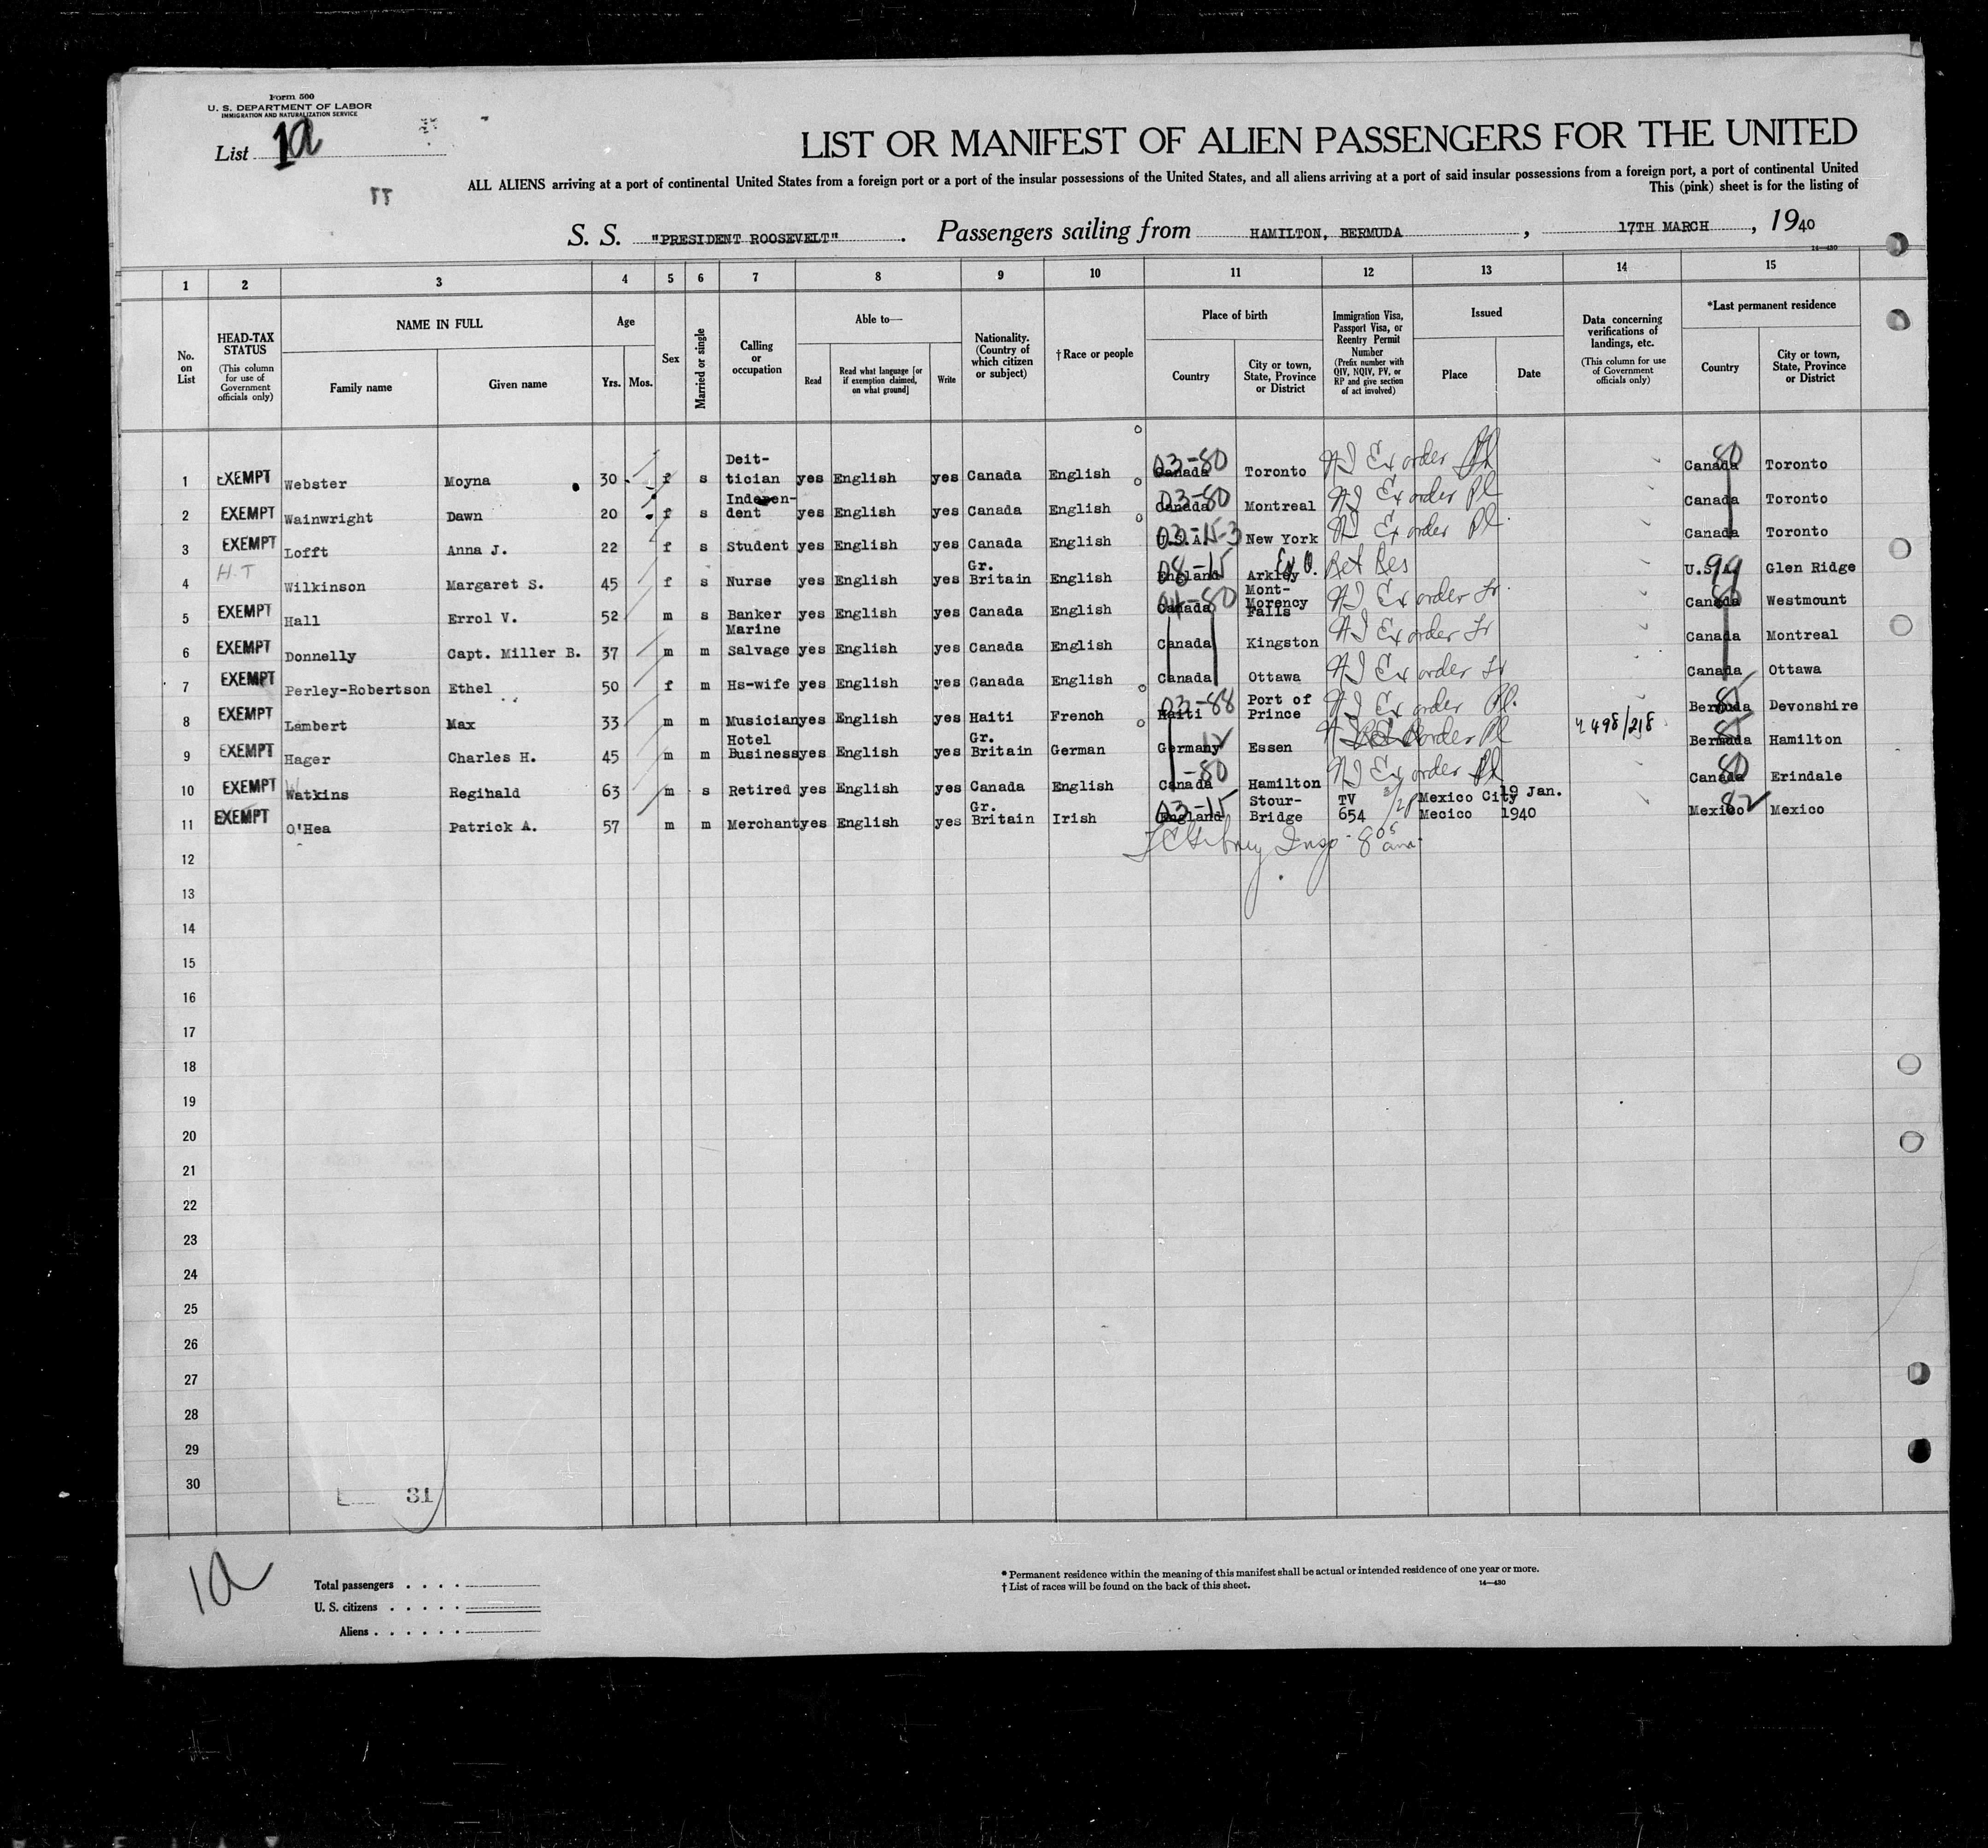 Form 500
U. S. DEPARTMENT OF LABOR
IMMIGRATION AND NATURALIZATION SERVICE
List 1a
LIST OR MANIFEST OF ALIEN PASSENGERS FOR THE UNITED
ALL ALIENS arriving at a port of continental United States from a foreign port or a port of the insular possessions of the United States, and all aliens arriving at a port of said insular possessions from a foreign port, a port of continental United
This (pink) sheet is for the listing of
S. S. "PRESIDENT ROOSEVELT". Passengers sailing from HAMILTON, BERMUDA, 17TH MARCH, 1940
14—430
1 2 3 4 5 6 7 8 9 10 11 12 13 14 15
No. on List
HEAD-TAX STATUS (This column for use of Government officials only)
NAME IN FULL
Family name Given name
Age
Yrs. Mos.
Sex
Married or single
Calling or occupation
Able to—
Read Read what language [or if exemption claimed, on what ground] Write
Nationality. (Country of which citizen or subject)
†Race or people
Place of birth
Country City or town, State, Province or District
Immigration Visa, Passport Visa, or Reentry Permit Number (Prefix number with QIV, NQIV, PV, or RP and give section of act involved)
Issued
Place Date
Data concerning verifications of landings, etc. (This column for use of Government officials only)
*Last permanent residence
Country City or town, State, Province or District
1 EXEMPT Webster Moyna 30 f s Deit-tician yes English yes Canada English Canada 03-80 Toronto Ex order Canada 80 Toronto
2 EXEMPT Wainwright Dawn 20 f s Indepen-dent yes English yes Canada English Canada 03-80 Montreal Ex order Pl Canada Toronto
3 EXEMPT Lofft Anna J. 22 f s Student yes English yes Canada English U.S.A. New York Ex order Pl. Canada Toronto
4 H.T Wilkinson Margaret S. 45 f s Nurse yes English yes Gr. Britain English England 08-15 Arkley Ex O. Ret Res U.S.A. 99 Glen Ridge
5 EXEMPT Hall Errol V. 52 m s Banker yes English yes Canada English Canada Mont-Morency Falls Ex order Canada Westmount
6 EXEMPT Donnelly Capt. Miller B. 37 m m Marine Salvage yes English yes Canada English Canada Kingston Ex order Canada Montreal
7 EXEMPT Perley-Robertson Ethel 50 f m Hs-wife yes English yes Canada English Canada Ottawa Ex order Canada Ottawa
8 EXEMPT Lambert Max 33 m m Musician yes English yes Haiti French Haiti 03-88 Port of Prince Ex order Pl. Bermuda Devonshire
9 EXEMPT Hager Charles H. 45 m m Hotel Business yes English yes Gr. Britain German Germany Essen order Pl Bermuda Hamilton
10 EXEMPT Watkins Reginald 63 m s Retired yes English yes Canada English Canada -80 Hamilton Ex order Canada 80 Erindale
11 EXEMPT O'Hea Patrick A. 57 m m Merchant yes English yes Gr. Britain Irish England 03-15 Stour-Bridge TV 654 Mexico City Mecico 19 Jan. 1940 Mexico 82 Mexico
12
13
14
15
16
17
18
19
20
21
22
23
24
25
26
27
28
29
30
31
1a
Total passengers
U. S. citizens
Aliens
* Permanent residence within the meaning of this manifest shall be actual or intended residence of one year or more.
† List of races will be found on the back of this sheet.
14—430